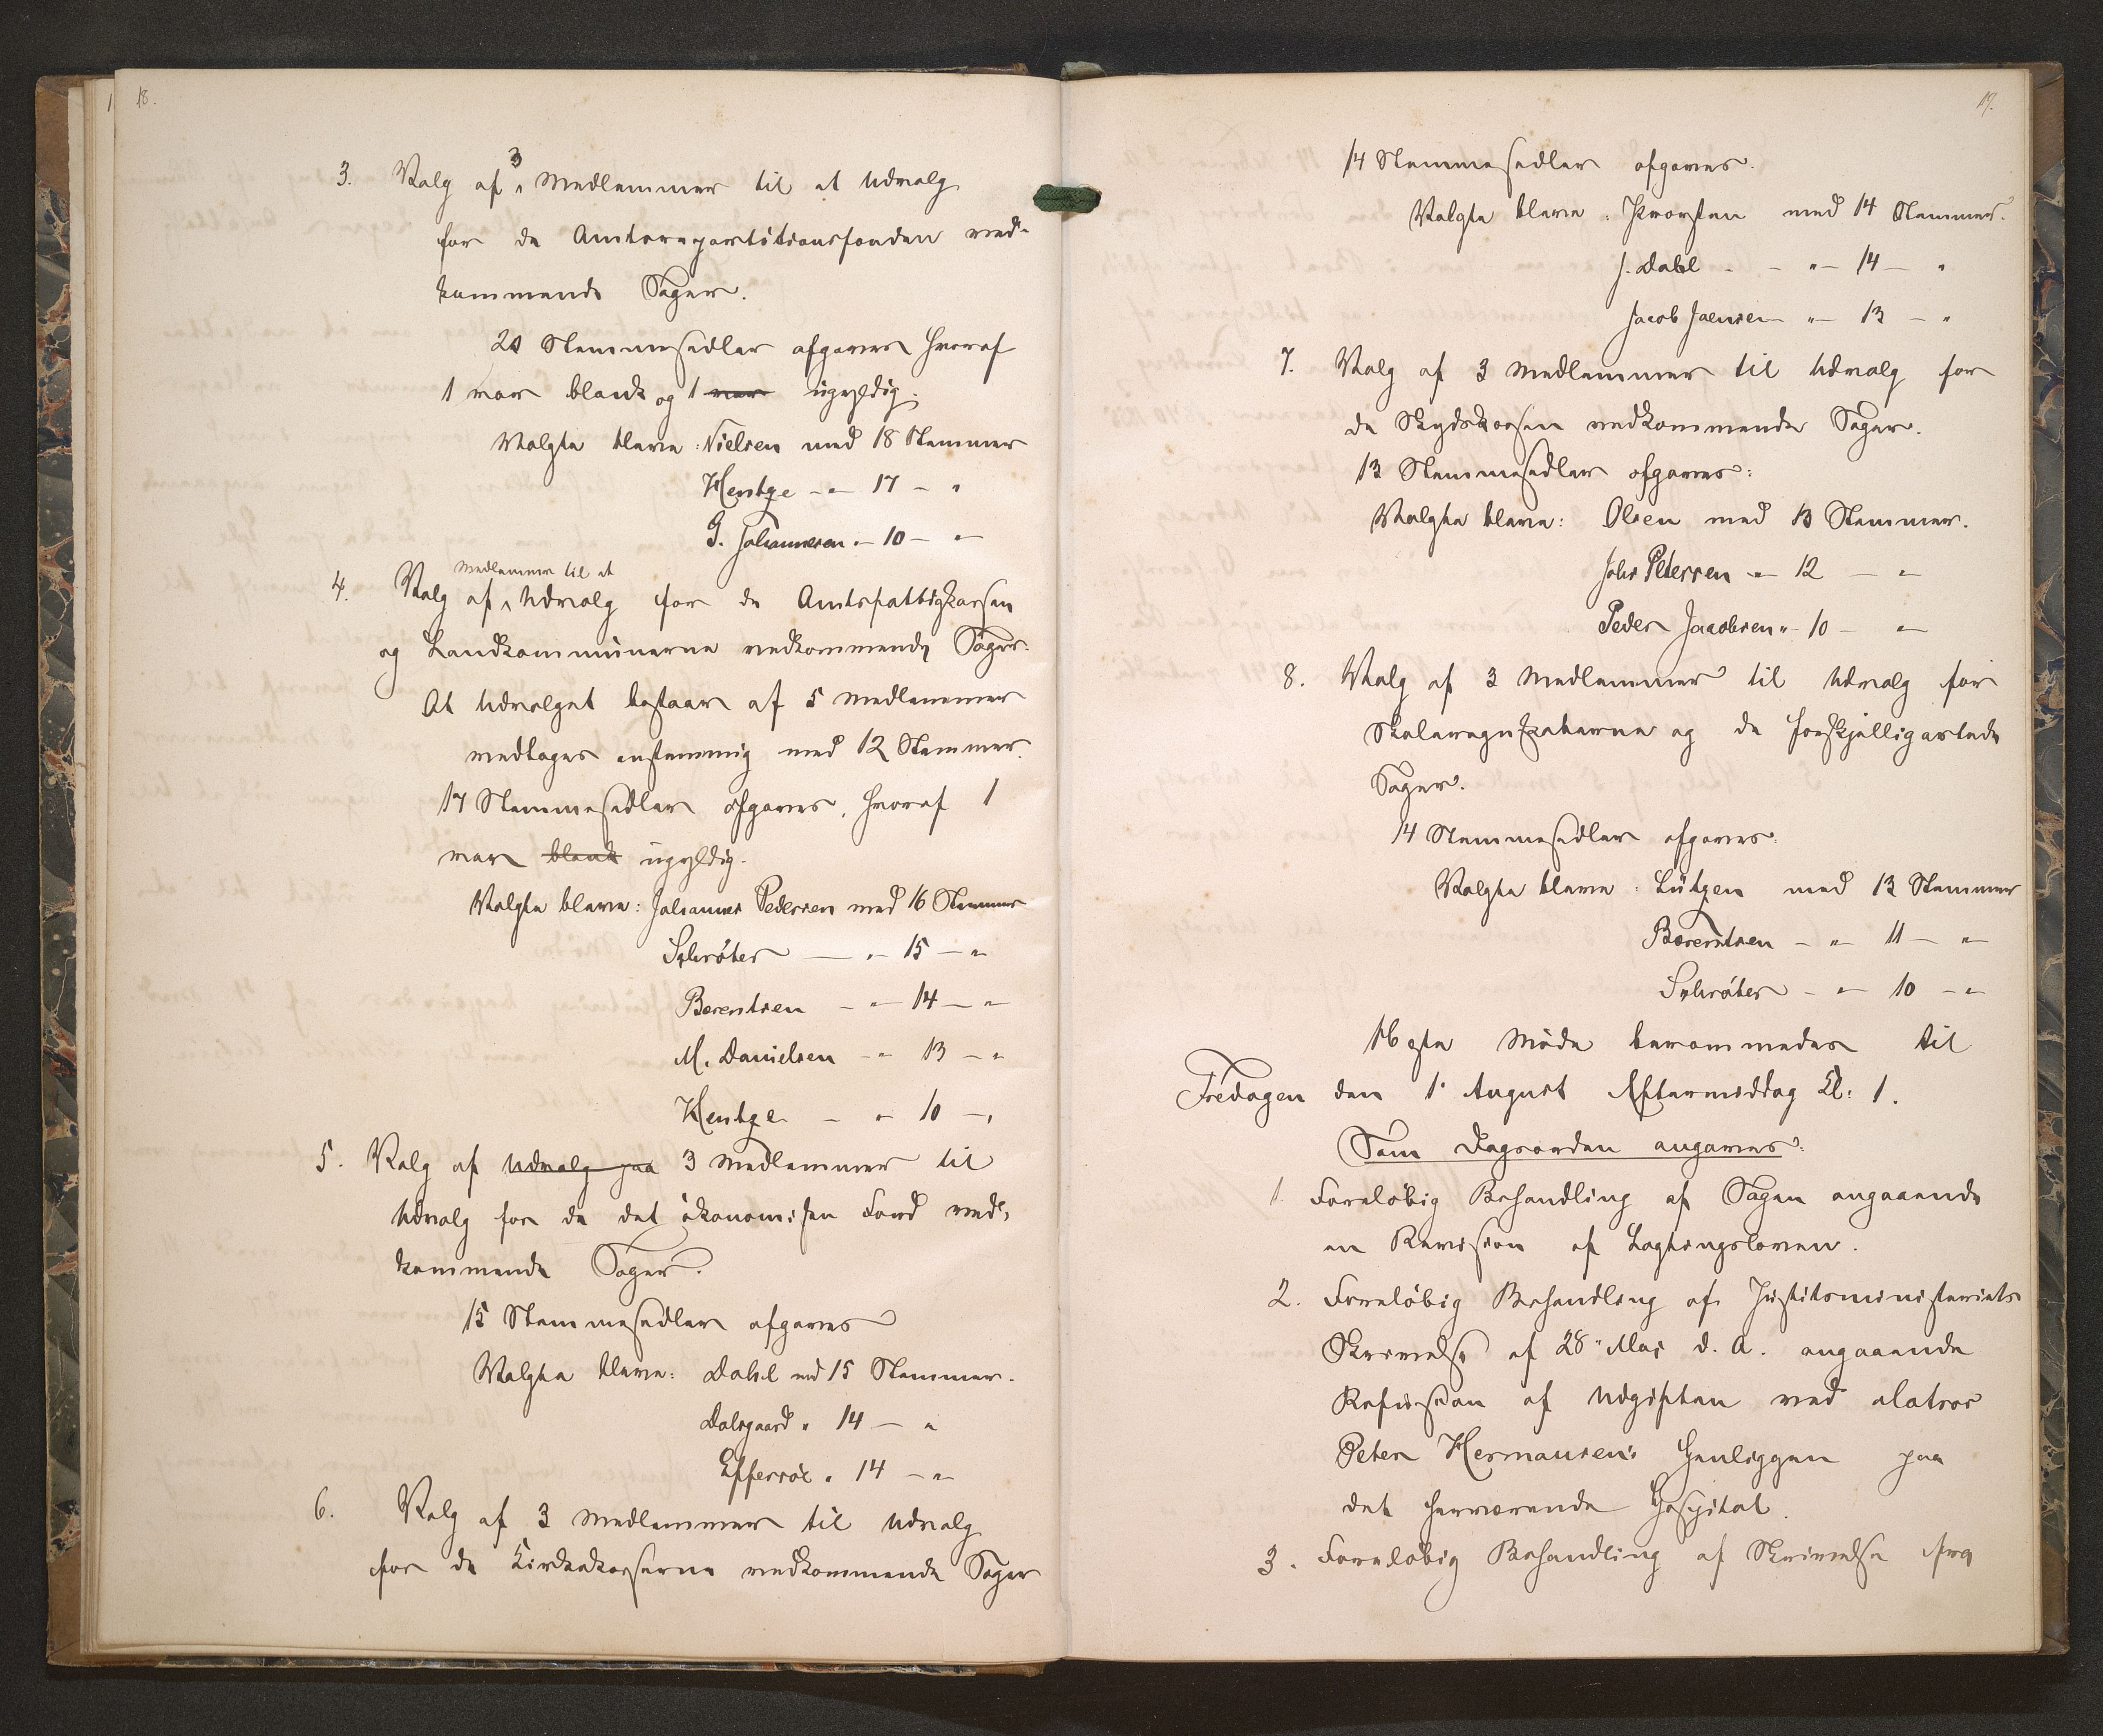 18.
3. Valg af 3 Medlemmer til et Udvalg
for de Amtsrepartitionsfonden ved-
kommende Sager.
20 Stemmesedler afgaves hvoraf
1 var blank og 1 var ugyldig.
Valgte bleve: Nielsen med 18 Stemmer
Hentze -"- 17 - "
G. Johannesen "- 10 - "
Medlemmer til et
4. Valg af Udvalg for de Amtsfattigkassen
og Landkommunerne vedkommende Sager.
At Udvalget bestaar af 5 Medlemmer
vedtages enstemmig med 12 Stemmer.
17 Stemmesedler afgaves, hvoraf 1
var blank ugyldig.
Valgte bleve: Johannes Pedersen med 16 Stemmer
Schrøter - " - 15 - "
Berentsen - " - 14 - "
M. Danielsen - " 13 - "
Hentze - " - 10 - "
5. Valg af Udvalg paa 3 Medlemmer til
Udvalg for de det økonomiske Fond ved-
kommende Sager.
15 Stemmesedler afgaves
Valgte bleve: Dahl med 15 Stemmer.
Dalsgaard " 14 - "
Effersøe " 14 - "
6. Valg af 3 Medlemmer til Udvalg
for de Kirkekasserne vedkommende Sager
19.
14 Stemmesedler afgaves.
Valgte bleve: Provsten med 14 Stemmer.
J. Dahl - - "- 14 - "
Jacob Joensen "- 13 - "
7. Valg af 3 Medlemmer til Udvalg for
de Skydskassen vedkommende Sager.
13 Stemmesedler afgaves:
Valgte bleve: Olsen med 13 Stemmer.
Johs Petersen -"- 12 - "
Peder Jacobsen "- 10 - "
8. Valg af 3 Medlemmer til Udvalg for
Skoleregnskaberne og de forskjelligartede
Sager.
14 Stemmesedler afgaves:
Valgte bleve: Lützen med 13 Stemmer
Berentsen - " - 11 - "
Schrøter - " - 10 - "
Møde berammedes til
Fredagen den 1. August Eftermiddag Kl: 1.
Som Dagsorden angaves:
1. Foreløbig Behandling af Sagen angaaende
en Revision af Lagtingsloven.
2. Foreløbig Behandling af Justitsministeriets
Skrivelse af 28" Mai d. A. angaaende
Refusion af Udgiften ved Matros
Peter Hermansens Henliggen paa
det herværende Hospital.
3. Foreløbig Behandling af Skrivelse fra